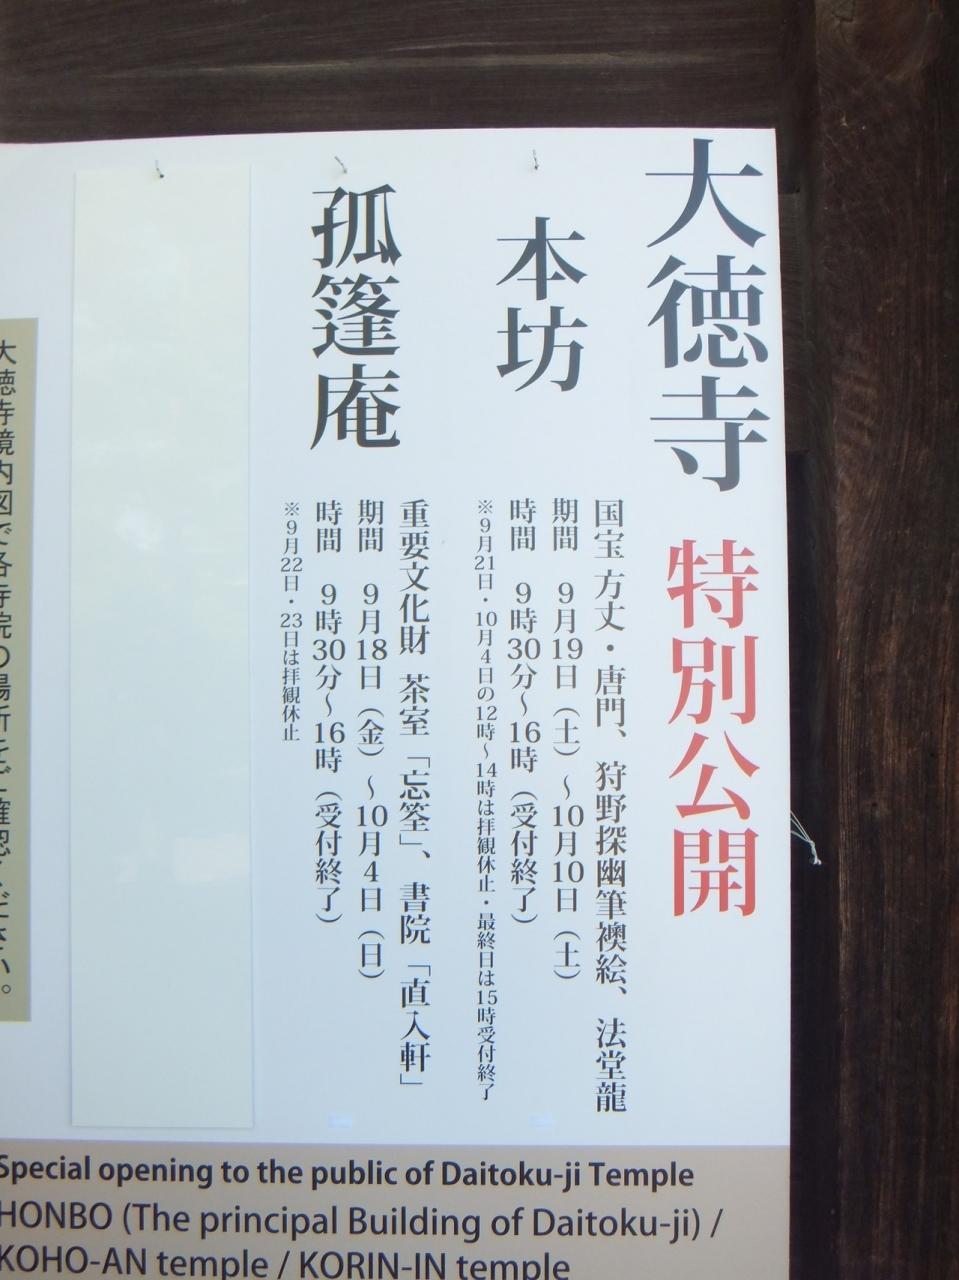 大徳寺 特別公開
本坊
国宝 方丈・唐門、狩野探幽筆襖絵、法堂龍
期間 9月19日（土）～10月10日（土）
時間 9時30分～16時（受付終了）
※9月21日・10月4日の12時～14時は拝観休止・最終日は15時受付終了
孤篷庵
重要文化財 茶室「忘筌」、書院「直入軒」
期間 9月18日（金）～10月4日（日）
時間 9時30分～16時（受付終了）
※9月22日・23日は拝観休止
大徳寺境内図で各寺院の場所をご確認ください。
Special opening to the public of Daitoku-ji Temple
HONBO (The principal Building of Daitoku-ji) /
KOHO-AN temple / KORIN-IN temple